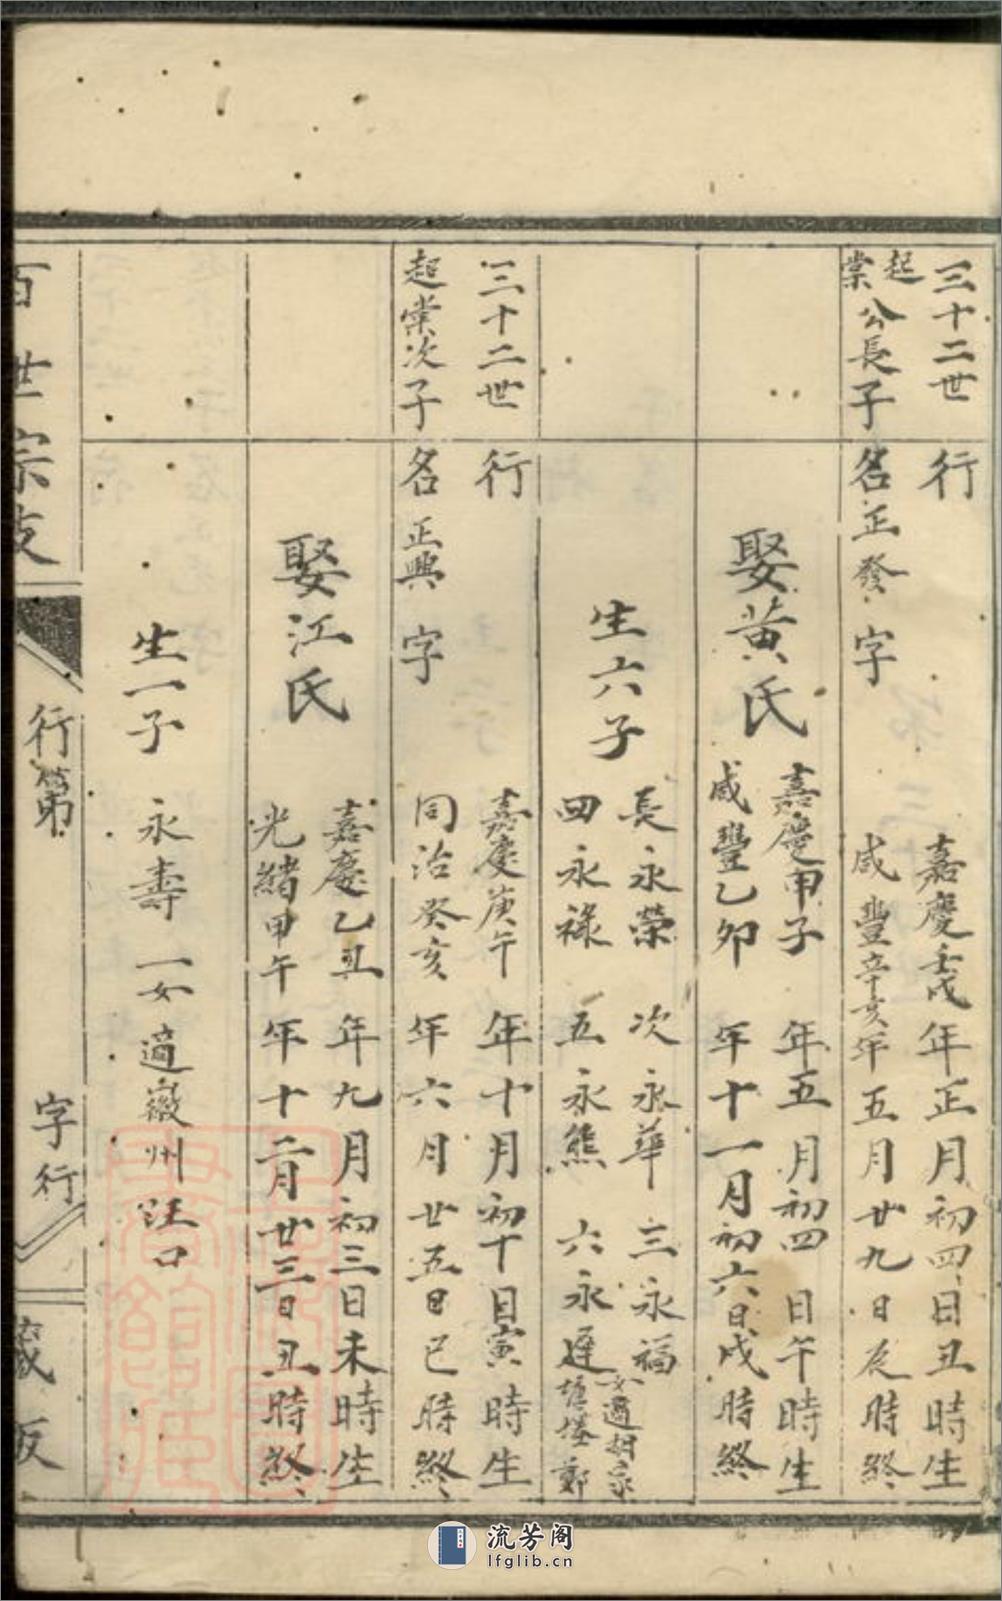 三十二世 行 嘉慶壬戌年正月初四日丑時生
起棠公長子 名正發 字 咸豐辛亥年五月廿九日辰時終
娶黃氏 嘉慶甲子年五月初四日午時生
咸豐乙卯年十一月初六日戌時終
生六子 長永榮 次永華 三永福 女適胡家
四永祿 五永熊 六永遲 塘塝鄭
三十二世 行 嘉慶庚午年十月初十日寅時生
起棠次子 名正興 字 同治癸亥年六月廿五日巳時終
娶江氏 嘉慶乙丑年九月初三日未時生
光緒甲午年十二月廿三日丑時終
生一子 永壽 一女適徽州汪口
百世宗支 行第 字行 藏板
流芳阁
lfglib.cn